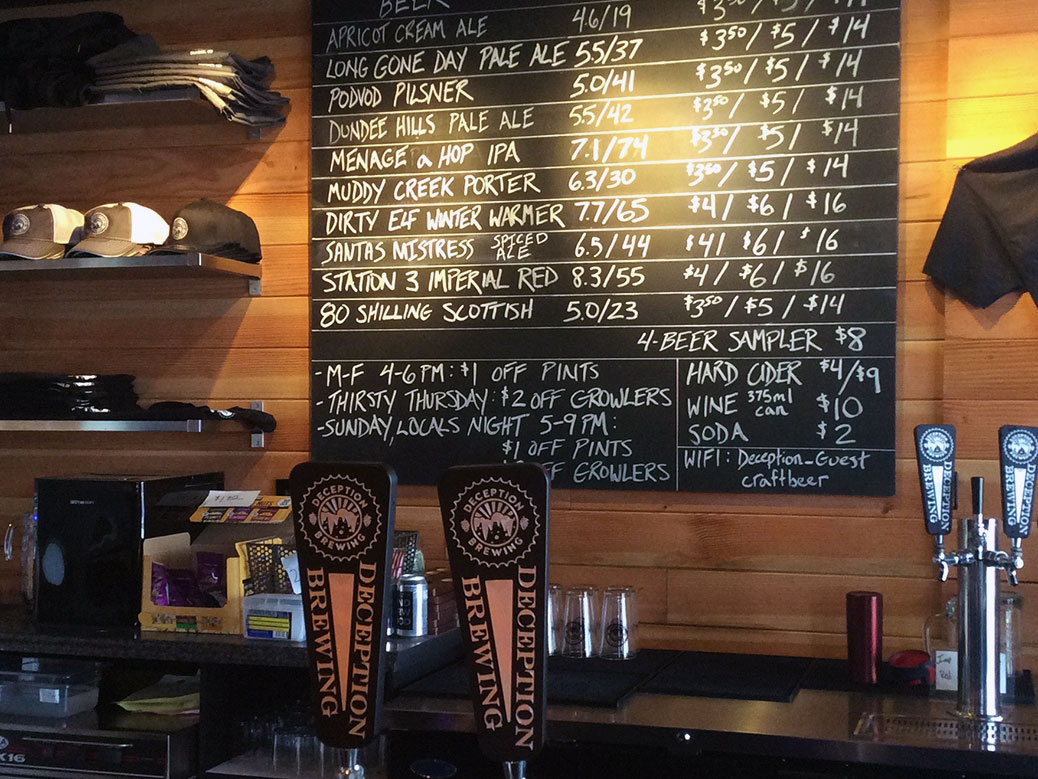 BEER
APRICOT CREAM ALE 4.6/19 $3.50/ $5/ $14
LONG GONE DAY PALE ALE 5.5/37 $3.50/ $5/ $14
PODVOD PILSNER 5.0/41 $3.50/ $5/ $14
DUNDEE HILLS PALE ALE 5.5/42 $3.50/ $5/ $14
MENAGE a HOP IPA 7.1/74 $3.50/ $5/ $14
MUDDY CREEK PORTER 6.3/30 $3.50/ $5/ $14
DIRTY ELF WINTER WARMER 7.7/65 $4/ $6/ $16
SANTAS MISTRESS SPICED ALE 6.5/44 $4/ $6/ $16
STATION 3 IMPERIAL RED 8.3/55 $4/ $6/ $16
80 SHILLING SCOTTISH 5.0/23 $3.50/ $5/ $14
4-BEER SAMPLER $8
-M-F 4-6 PM: $1 OFF PINTS
-THIRSTY THURSDAY: $2 OFF GROWLERS
-SUNDAY, LOCALS NIGHT 5-9 PM:
$1 OFF PINTS
OFF GROWLERS
HARD CIDER $4/$9
WINE 375ml can $10
SODA $2
WIFI: Deception_Guest
craftbeer
DECEPTION BREWING
DECEPTION BREWING
DECEPTION BREWING
DECEPTION BREWING
DECEPTION BREWING
DECEPTION BREWING
K16